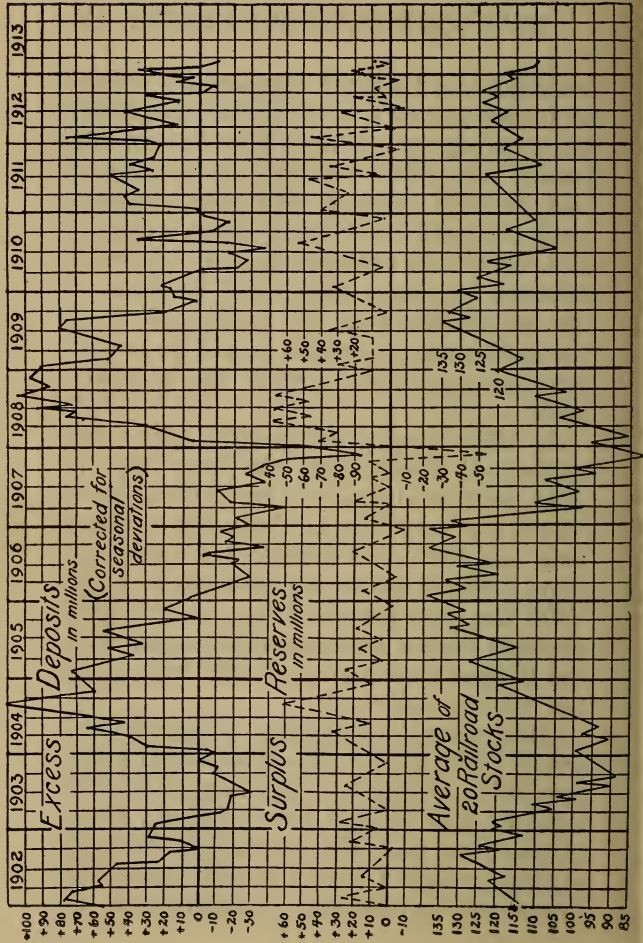 1902 1903 1904 1905 1906 1907 1908 1909 1910 1911 1912 1913
Excess Deposits
in millions
(Corrected for
seasonal
deviations)
+100
+90
+80
+70
+60
+50
+40
+30
+20
+10
0
-10
-20
-30
-40
-50
-60
-70
-80
-90
Surplus Reserves
in millions
+60
+50
+40
+30
+20
+10
0
-10
+60
+50
+40
+30
+20
-10
-20
-30
-40
-50
Average of
20 Railroad
Stocks
135
130
125
120
115
110
105
100
95
90
85
135
130
125
120